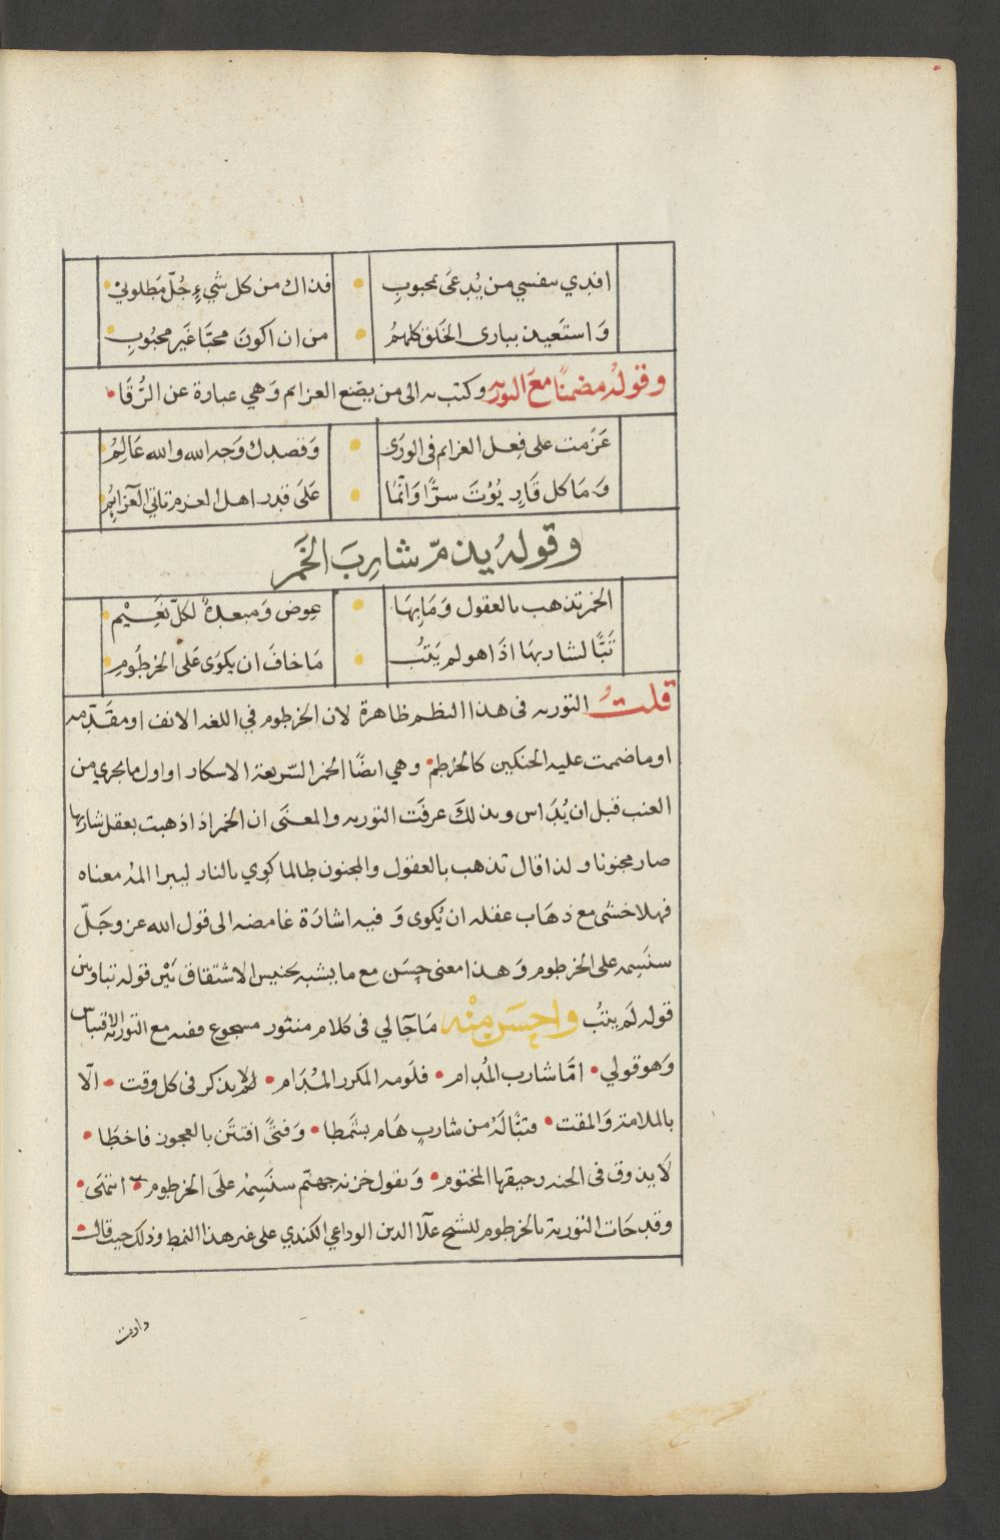 افدي بنفسي من يُدعَى بمحبوبِ • فذاك من كل شيءٍ جُلّ مَطلوبي
وَاستَعيذ ببارى الخَلق كلهمُ • من ان اكونَ محبّا غَير محبُوبِ
وقولهُ مضمنًا معَ التوريه وكتب به الى من يصَنع العزايم وَهي عبارة عن الرُّقَا •
عَزَمت على فِعل العزايم في الورَى • وَقصدك وَجه الله والله عَالِمُ
وَمَا كل قَارٍ يُؤتَ سرًّا وَانّمَا • عَلَى قدر اهل العزم تاتي العَزايمُ
وقوله يُذمّ شارِبَ الخَمر
الخمر تذهب بالعقول وَمَا بِهَا • عِوض وَمبعدةٌ لكلّ نَعِيْم
تَبًّا لشاربهَا اذَا هو لم يَتبُ • مَا خافَ ان يكوَى عَلى الخرطُومِ
قلتُ التوريه في هذا النظم ظاهرة لان الخرطوم في اللغه الانف او مقَدّمه
او ما ضمت عليه الحنكين كالخرطم • وهي ايضًا الخمر السّريعة الاسكار او اول ما يجري من
العنب قبل ان يُدَاس وبذلكَ عرفَت التوريه والمعنَى ان الخمر اذا ذهبت بعقل شاربها
صار مجنونا ولذا قال تذهب بالعقول والمجنون طالما كوي بالنار ليبرا المذ معناه
فهلا خشى مع ذهَاب عقله ان يُكوى وَفيه اشارَة غامضه الى قول الله عز وجَلّ
سنَسِمه على الخرطوم وَهذا معنى حِسَن مع ما يشبه تجنيس الاشتقاق بَيْن قوله تبا وبين
قوله لَم يتبُ واحسَن مِنْه مَا جَا لي في كلام منثور مسجوع وفيه مع التوريه الاقتباس
وَهو قولي • امّا شارب المُدام • فلَومه المكرر المُدَام • لم يذكر في كل وقت • الّا
بالملامة وَالمقت • فتبًّا لَهُ من شاربٍ هَام بشَمطا • وَفتىً افتتَن بالعجوز فاخطَا •
لَا يذوق في الجنه رحيقها المختوم • وَيقول خزنه جهنّم سنَسِمُه علَى الخرطوم • انتهَى •
وقد جَات التورية بالخرطوم للشيخ علَا الدين الوداعي الكندي على غير هذا النمط وذلك حيث قالـ •